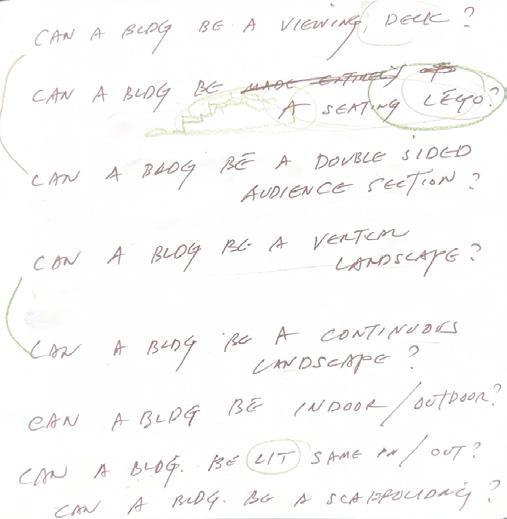 CAN A BLDG BE A VIEWING DECK?
CAN A BLDG BE MADE ENTIRELY OF
A SEATING LEGO?
CAN A BLDG BE A DOUBLE SIDED
AUDIENCE SECTION?
CAN A BLDG BE A VERTICAL
LANDSCAPE?
CAN A BLDG BE A CONTINUOUS
LANDSCAPE?
CAN A BLDG BE INDOOR/OUTDOOR?
CAN A BLDG. BE LIT SAME IN/OUT?
CAN A BLDG. BE A SCAFFOLDING?